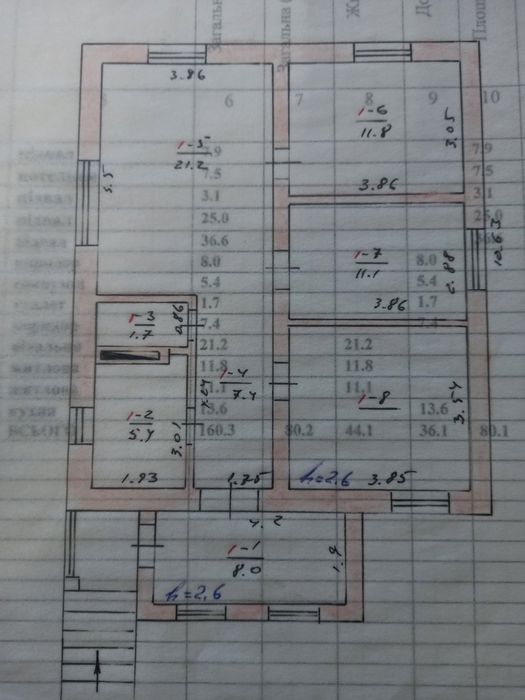 Загальна
Загальна
6
7
8
9
10
3.86
1-5
21.2
5.5
1-6
11.8
3.05
3.86
1-7
11.1
2.88
3.86
10.63
1-3
1.7
0.86
1-4
7.4
1-8
3.54
3.85
h=2.6
1-2
5.4
3.01
1.93
1.75
4.2
1-1
8.0
1.9
h=2.6
7.9
7.5
3.1
25.0
36.6
8.0
5.4
1.7
7.4
21.2
11.8
11.1
13.6
7.9
7.5
3.1
25.0
8.0
5.4
1.7
7.4
21.2
11.8
11.1
13.6
кухня
ВСЬОГО 160.3 80.2 44.1 36.1 80.1